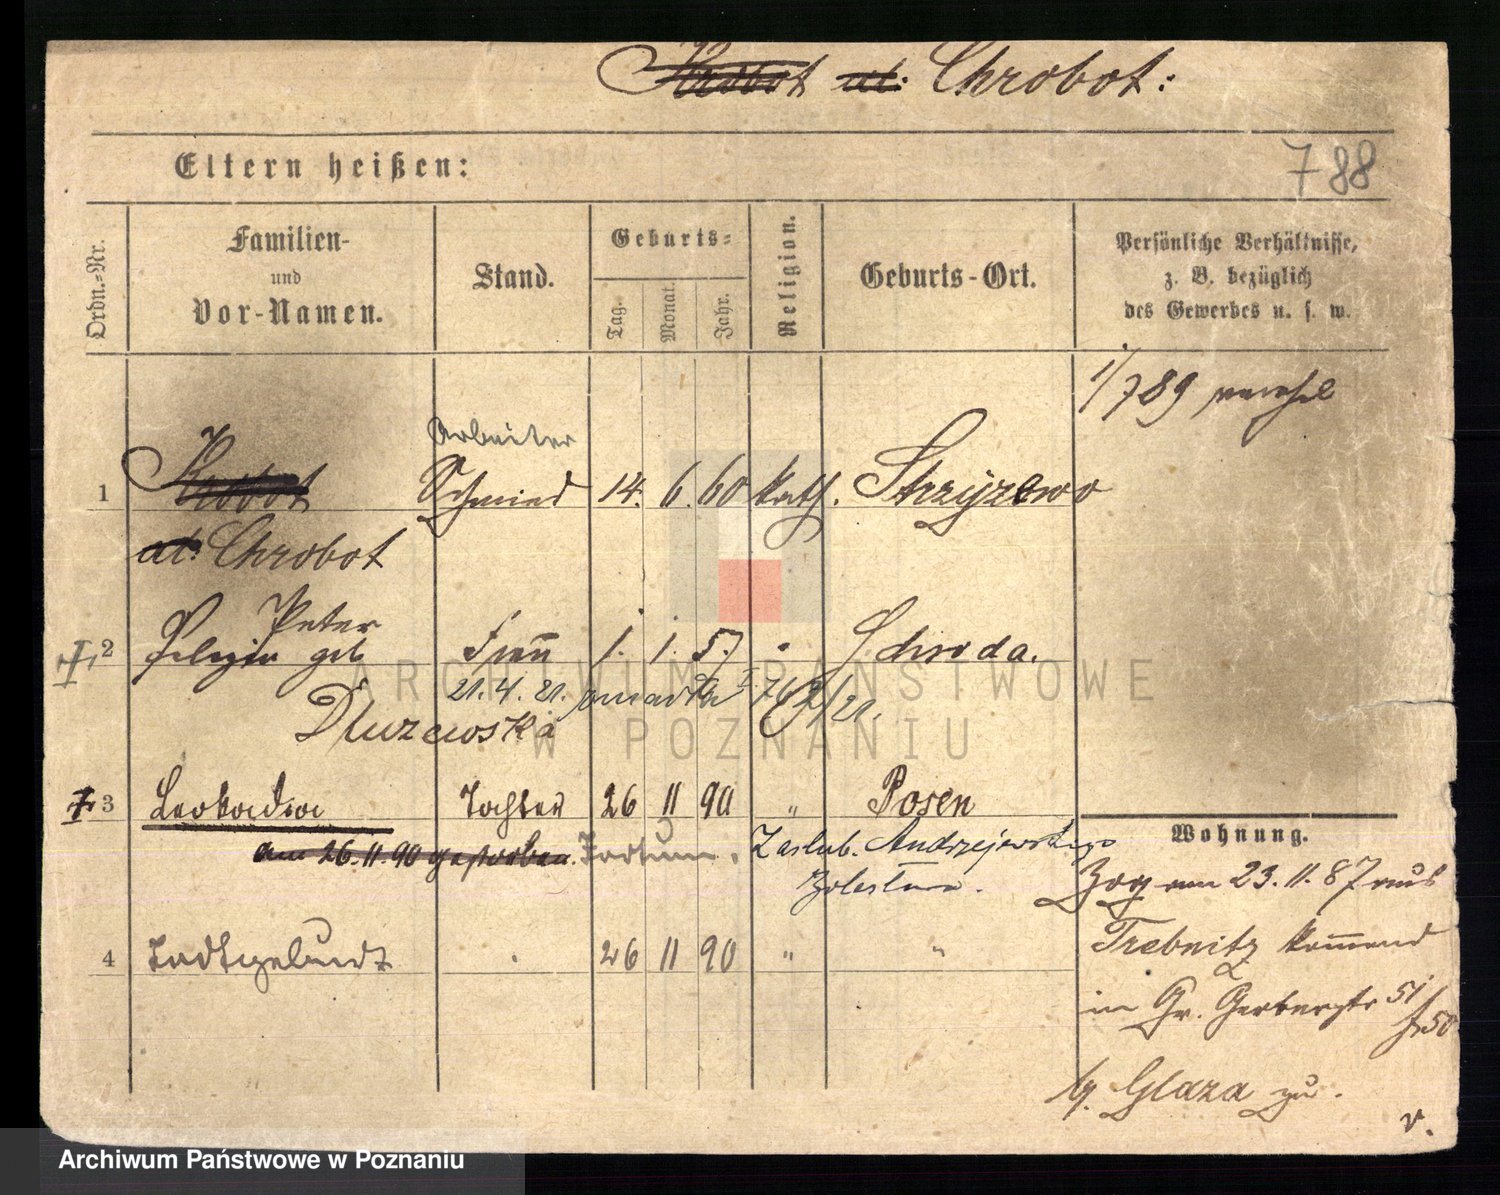 Krobot at: Chrobot:
Eltern heißen:
788
Ordn.-Nr.
Familien-
und
Vor-Namen.
Stand.
Geburts-
Tag.
Monat.
Jahr.
Religion.
Geburts-Ort.
Persönliche Verhältnisse,
z. B. bezüglich
des Gewerbes u. s. w.
1/789
Arbeiter
1 Krobot Schmied 14. 6. 60 kath. Strzyzewo
at: Chrobot
Peter
2 geb Frau 1. 1. 57 " Schroda.
21. 4. 21. zmarła 763/21.
Dluzewska
3 Leokadia Tochter 26 11 90 " Posen
am 26. 11. 90 gestorben. Zaslub. Andrzejewskego
Wohnung.
Zog am 23. 11. 87 aus
4 Todtgeburt 26 11 90 " "
Trebnitz kommend
in Gr. Gerberstr 51
50
b/ Glaza zu.
v.
ARCHIWUM PAŃSTWOWE
W POZNANIU
Archiwum Państwowe w Poznaniu